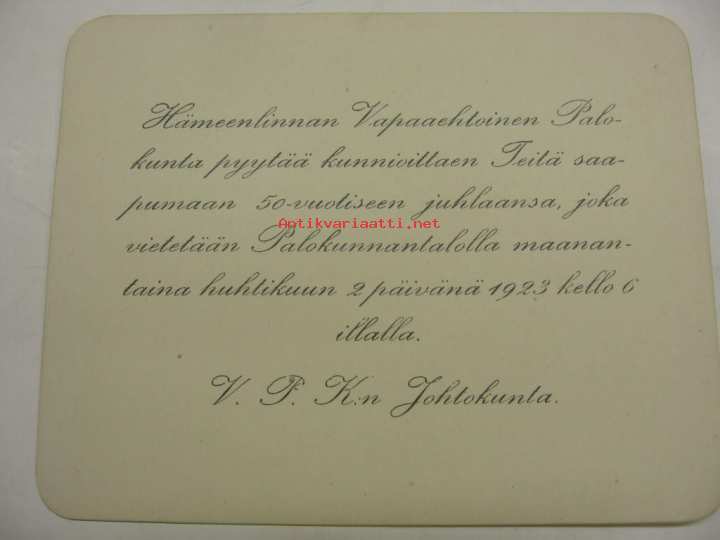 Hämeenlinnan Vapaaehtoinen Palo-
kunta pyytää kunnioittaen Teitä saa-
pumaan 50-vuotiseen juhlaansa, joka
Antikvariaatti.net
vietetään Palokunnantalolla maanan-
taina huhtikuun 2 päivänä 1923 kello 6
illalla.
V. P. K:n Johtokunta.